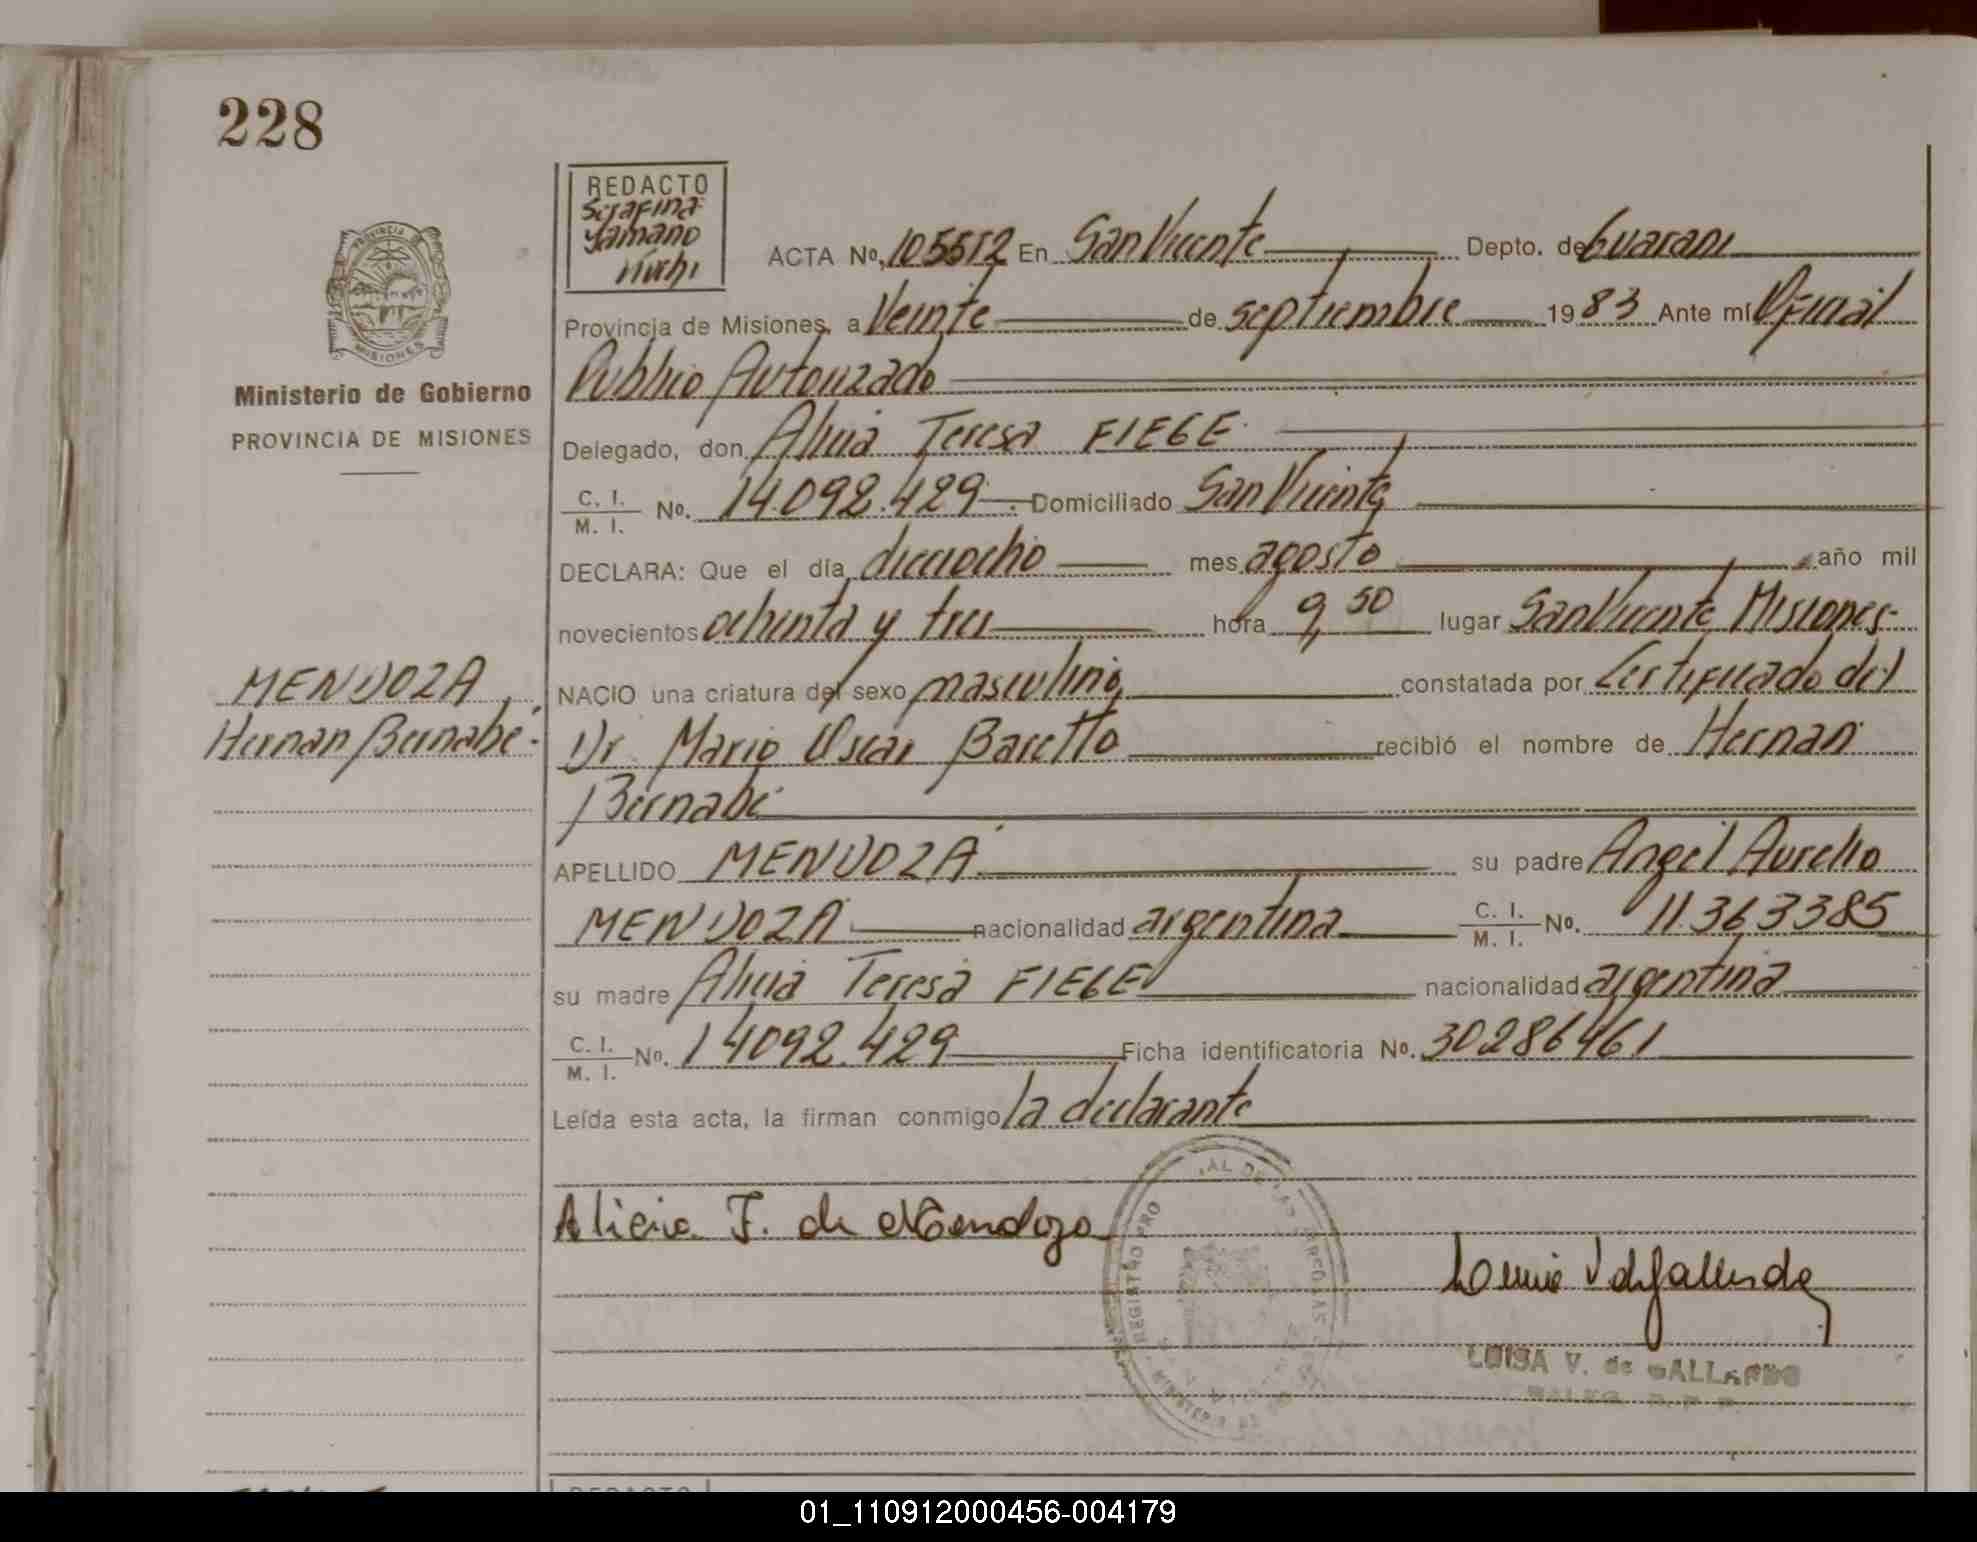 228
REDACTO
Serafina
Yamano
ACTA Nº. 105552 En San Vicente Depto. de Guarani
Provincia de Misiones, a Veinte de septiembre 1983 Ante mí Oficial
Publico Autorizado
PROVINCIA DE
MISIONES
Ministerio de Gobierno
PROVINCIA DE MISIONES
Delegado, don Alicia Teresa FIEGE
C. I. / M. I. Nº. 14.092.429 Domiciliado San Vicente
DECLARA: Que el día dieciocho mes agosto año mil
novecientos ochenta y tres hora 9,50 lugar San Vicente Misiones
MENDOZA,
Hernan Bernabé.
NACIO una criatura del sexo masculino constatada por Certificado del
Dr. Mario Oscar Baretto recibió el nombre de Hernan
Bernabé
APELLIDO MENDOZA su padre Angel Aurelio
MENDOZA nacionalidad argentina C. I. / M. I. Nº. 11.363385
su madre Alicia Teresa FIEGE nacionalidad argentina
C. I. / M. I. Nº. 14092.429 Ficha identificatoria Nº. 30286461
Leída esta acta, la firman conmigo la declarante
Alicia F. de Mendoza
REGISTRO PRO AL DE LAS PERSONAS
MINISTERIO DE
LUISA V. de GALLARDO
REDACTO
01_110912000456-004179